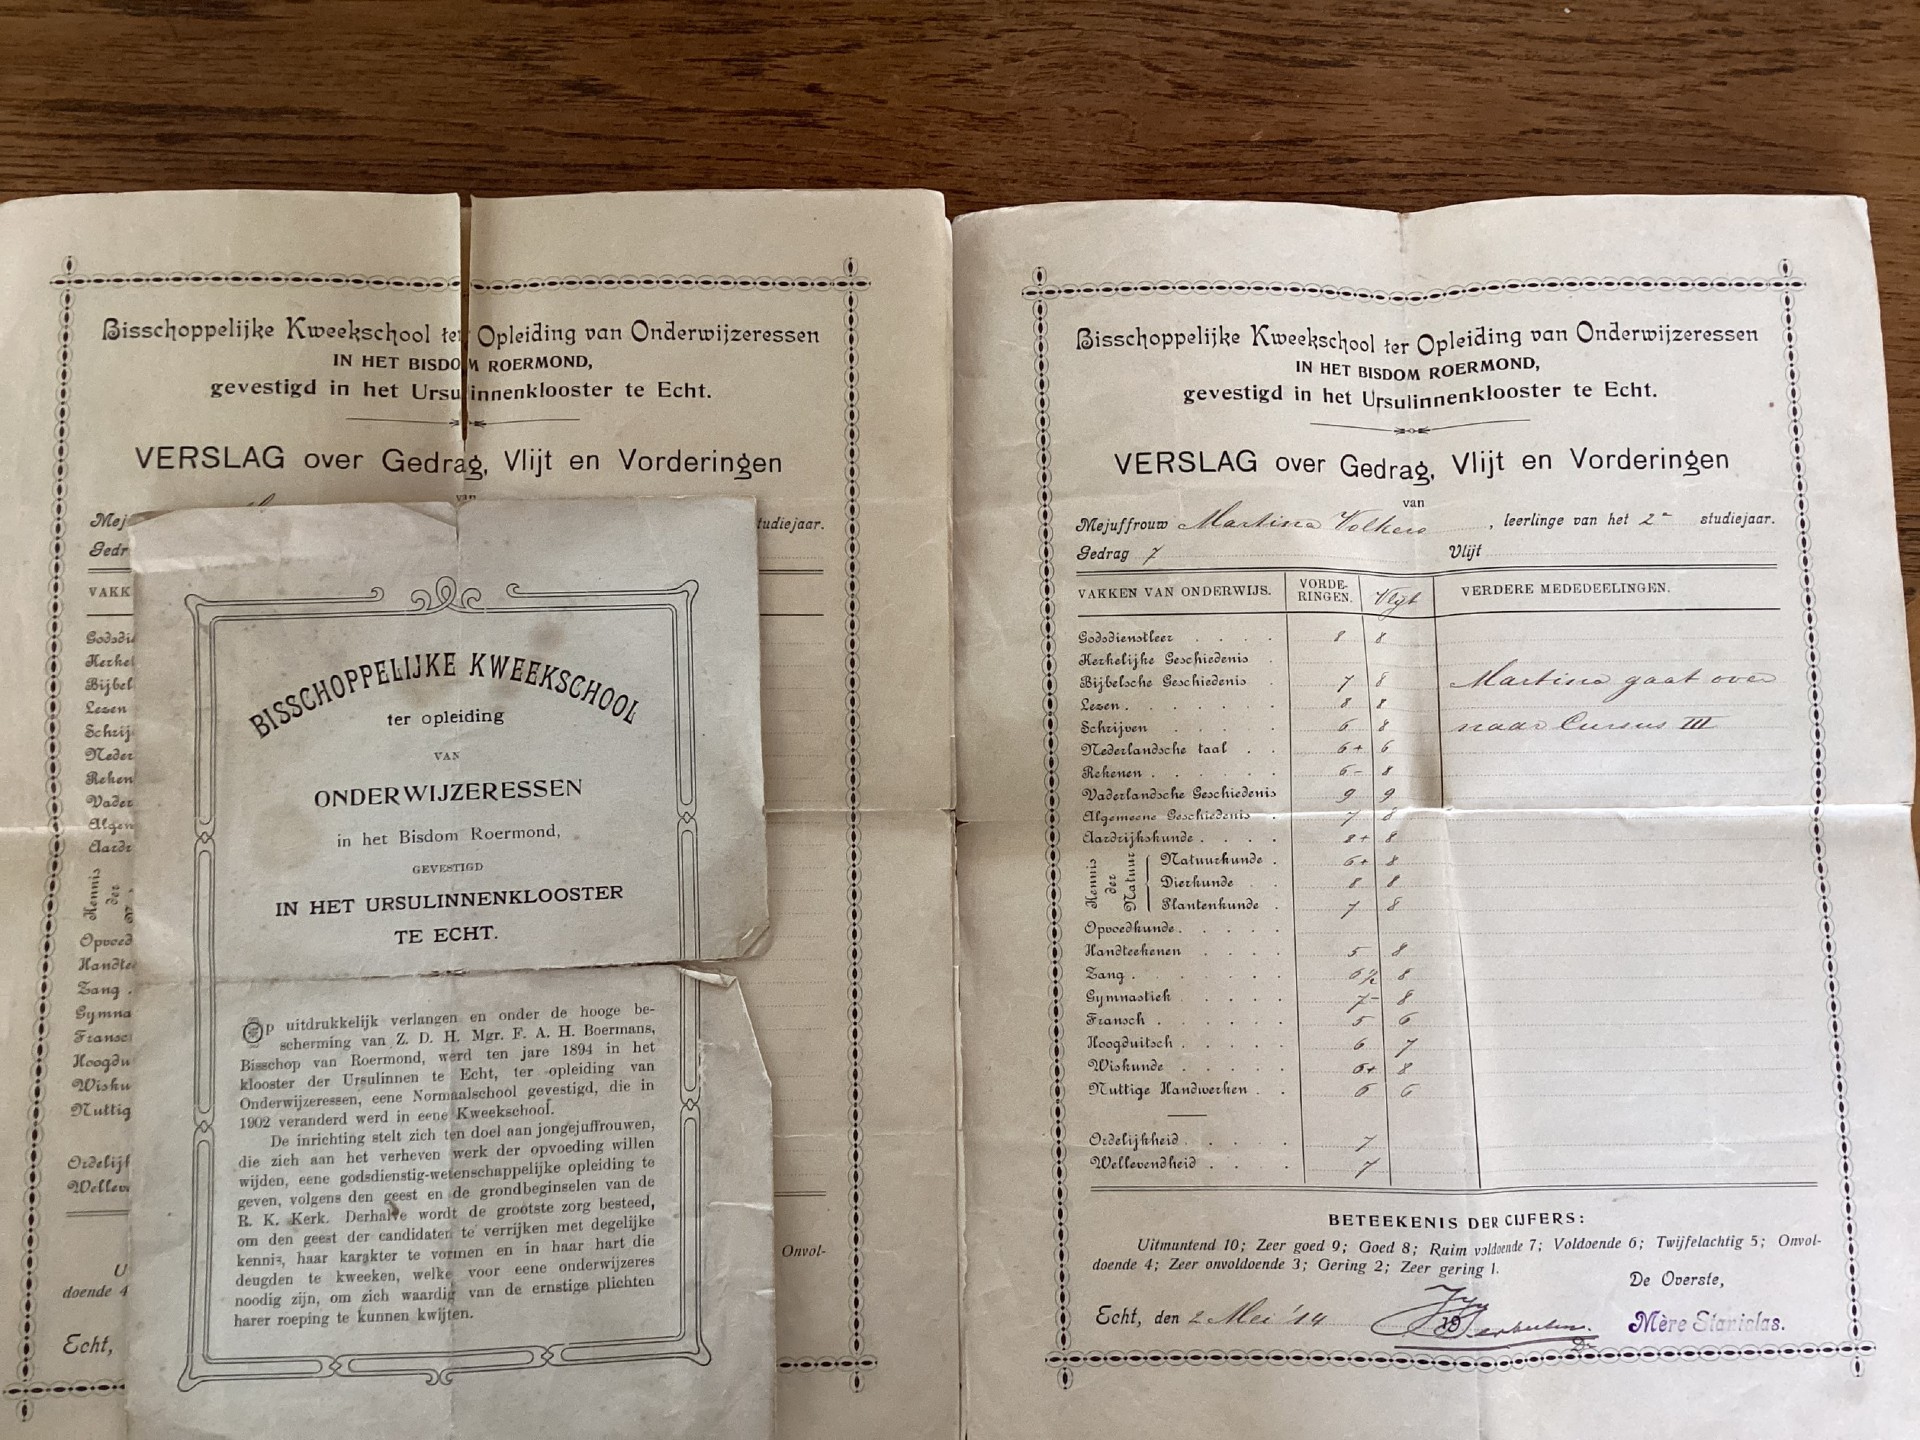 Bisschoppelijke Kweekschool ter Opleiding van Onderwijzeressen
IN HET BISDOM ROERMOND,
gevestigd in het Ursulinnenklooster te Echt.
VERSLAG over Gedrag, Vlijt en Vorderingen
van
Mej
studiejaar.
Gedr
VAKK
Godsdi
Kerkel
Bijbel
Lezen
Schrij
Neder
Reken
Vader
Algem
Aardr
Kennis
der
Opvoed
Handte
Zang .
Gymna
Fransc
Hoogdu
Wisku
Nuttig
Ordelijk
Wellev
U
Onvol-
doende 4
Echt,
BISSCHOPPELIJKE KWEEKSCHOOL
ter opleiding
VAN
ONDERWIJZERESSEN
in het Bisdom Roermond,
GEVESTIGD
IN HET URSULINNENKLOOSTER
TE ECHT.
Op uitdrukkelijk verlangen en onder de hooge be-
scherming van Z. D. H. Mgr. F. A. H. Boermans,
Bisschop van Roermond, werd ten jare 1894 in het
klooster der Ursulinnen te Echt, ter opleiding van
Onderwijzeressen, eene Normaalschool gevestigd, die in
1902 veranderd werd in eene Kweekschool.
De inrichting stelt zich ten doel aan jongejuffrouwen,
die zich aan het verheven werk der opvoeding willen
wijden, eene godsdienstig-wetenschappelijke opleiding te
geven, volgens den geest en de grondbeginselen van de
R. K. Kerk. Derhalve wordt de grootste zorg besteed,
om den geest der candidaten te verrijken met degelijke
kennis, haar karakter te vormen en in haar hart die
deugden te kweeken, welke voor eene onderwijzeres
noodig zijn, om zich waardig van de ernstige plichten
harer roeping te kunnen kwijten.
Bisschoppelijke Kweekschool ter Opleiding van Onderwijzeressen
IN HET BISDOM ROERMOND,
gevestigd in het Ursulinnenklooster te Echt.
VERSLAG over Gedrag, Vlijt en Vorderingen
van
Mejuffrouw Martina Volkers, leerlinge van het 2e studiejaar.
Gedrag 7 Vlijt
VAKKEN VAN ONDERWIJS. VORDE-RINGEN. Vlijt VERDERE MEDEDEELINGEN.
Godsdienstleer . . . . 8 8
Kerkelijke Geschiedenis .
Bijbelsche Geschiedenis . 7 8 Martina gaat over
Lezen . . . . . . . 8 8
Schrijven . . . . . 6 8 naar Cursus III
Nederlandsche taal . . 6+ 6
Rekenen . . . . . . 6- 8
Vaderlandsche Geschiedenis 9 9
Algemeene Geschiedenis . 7 8
Aardrijkskunde . . . . 8+ 8
Kennis der Natuur
Natuurkunde . 6+ 8
Dierkunde . . 8 8
Plantenkunde . 7 8
Opvoedkunde . . . . .
Handteekenen . . . . 5 8
Zang . . . . . . 6½ 8
Gymnastiek . . . . 7- 8
Fransch . . . . . . 5 6
Hoogduitsch . . . . . 6 7
Wiskunde . . . . . 6+ 8
Nuttige Handwerken . . 6 6
Ordelijkheid . . . . 7
Wellevendheid . . . . 7
BETEEKENIS DER CIJFERS:
Uitmuntend 10; Zeer goed 9; Goed 8; Ruim voldoende 7; Voldoende 6; Twijfelachtig 5; Onvol-
doende 4; Zeer onvoldoende 3; Gering 2; Zeer gering 1.
De Overste,
Echt, den 2 Mei '14 19
Mère Stanislas.